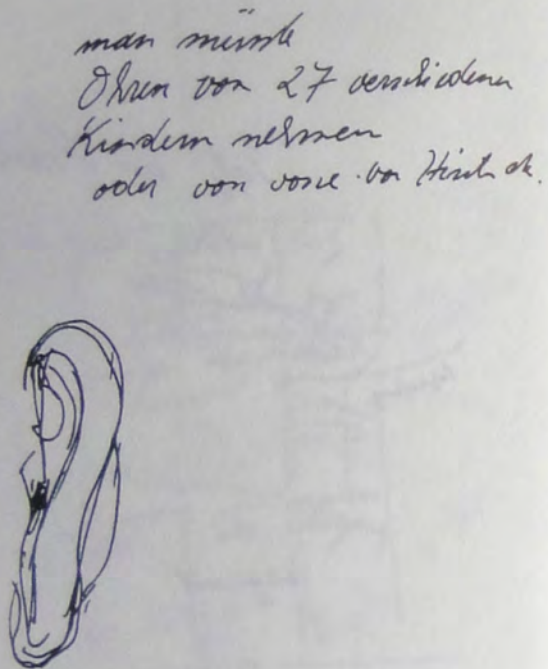 man müsste
Ohren von 27 verschiedenen
Kindern nehmen
oder von vorne von